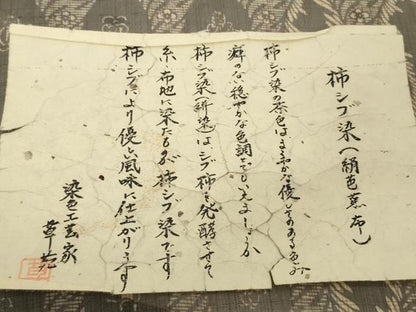 柿シブ染(絹芭蕉布)
柿シブ染の茶色はまろやかな優しさのある色
癖のない穏やかな色調とでもいえましょうか
柿シブ染(絣染)はシブ柿を発酵させて
糸、布地に染たものが柿シブ染です
柿シブにより優しい風味に仕上がります
染色工芸家